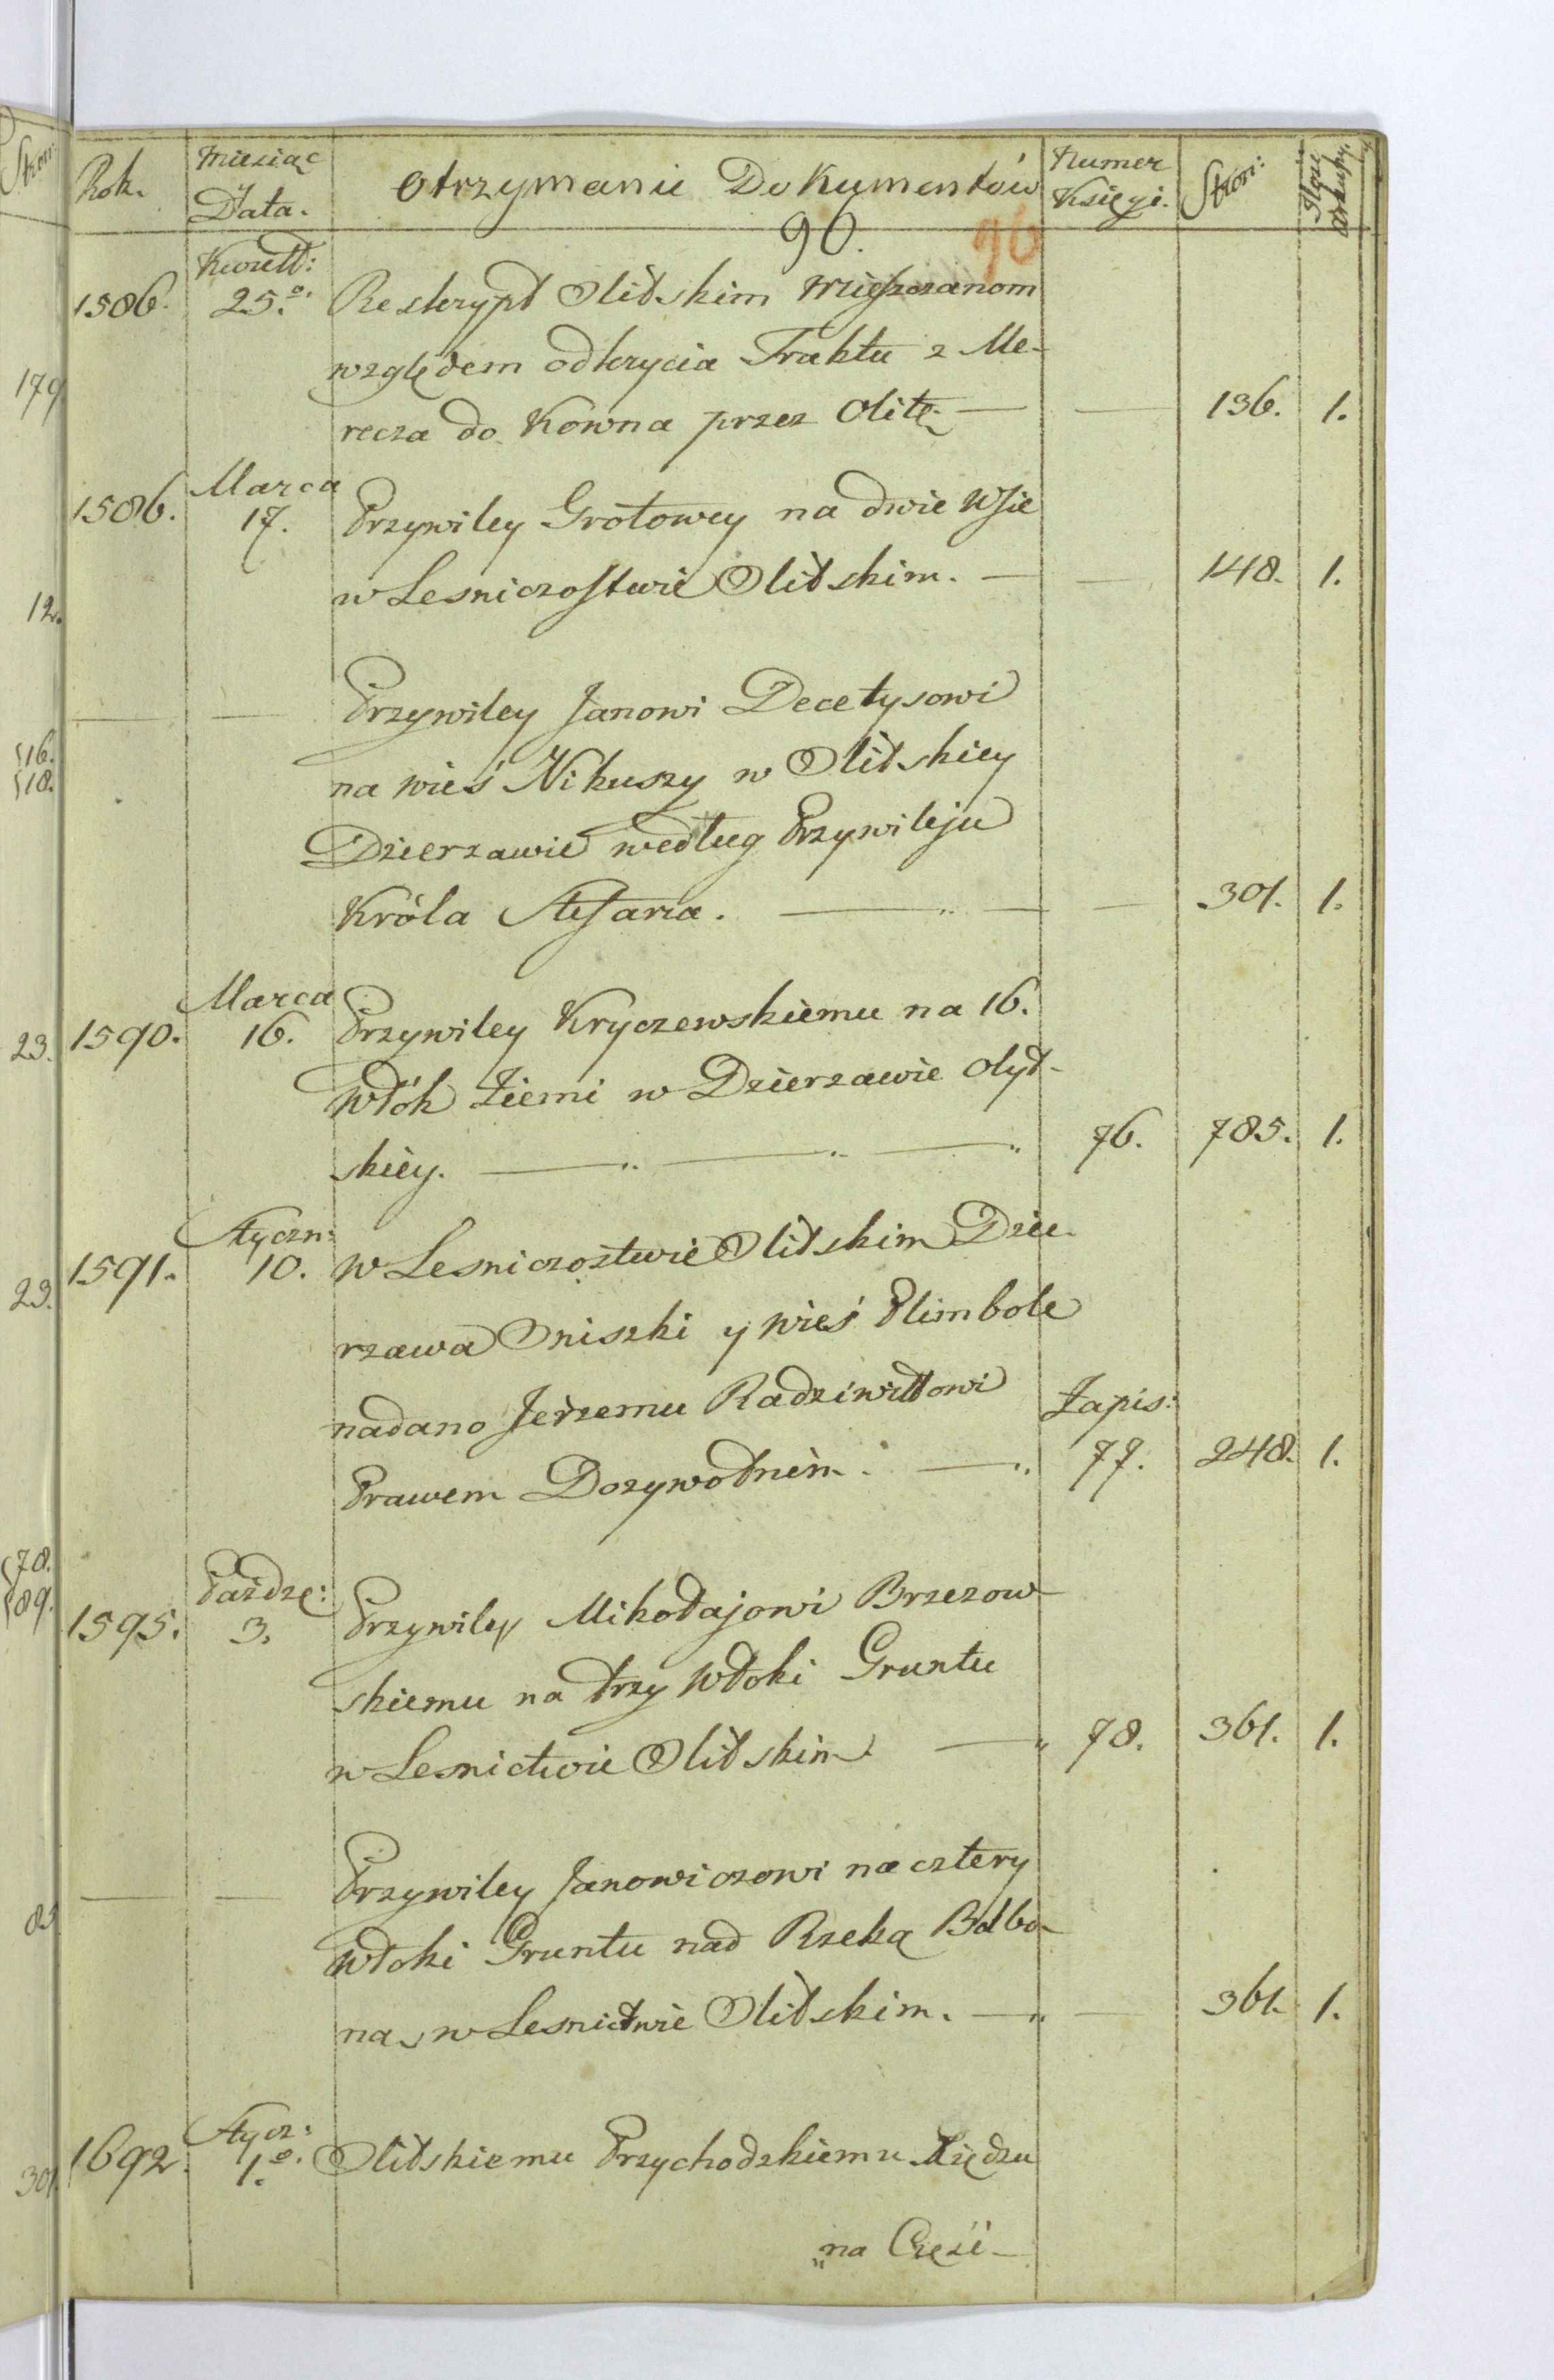 Rok. Miesiąc Data. Otrzymanie Dokumentów Numer Księgi. Stron: Ilość Arkuszy.
90. 90
1586. Kwiett: 25.o Reskrypt Olitskim Mieszczanom
względem odkrycia Traktu z Me-
recza do Kowna przez Olitę. — — 136. 1.
1586. Marca 17. Przywiley Grotowey na dwie Wsie
w Lesniczostwie Olitskim. — — 148. 1.
— — Przywiley Janowi Decetysowi
na wieś Nikuszy w Olitskiey
Dzierzawie według Przywileju
Króla Stefana. — — — 301. 1.
1590. Marca 16. Przywiley Kryczewskiemu na 16.
Włók Ziemi w Dzierzawie Olyt-
skiey. — — — 76. 785. 1.
1591. Styczn: 10. w Lesniczostwie Olitskim Dzie-
rzawa Oniszki y wieś Plimbole
nadano Jerzemu Radziwiłłowi Zapis:
Prawem Dozywotnim. — 77. 248. 1.
1595. Paździe: 3. Przywiley Mikołajowi Brzezow-
skiemu na trzy Włoki Gruntu
w Lesnictwie Olitskim — 78. 361. 1.
— — Przywiley Janowiczowi na cztery
Włoki Gruntu nad Rzeką Balbo-
na, w Lesnictwie Olitskim. — — 361. 1.
1692. Stycz: 1.o Olitskiemu Przychodzkiemu Xiędzu
na Część
Stron:
179
12.
516.
518.
23.
23.
78.
89.
85
301.